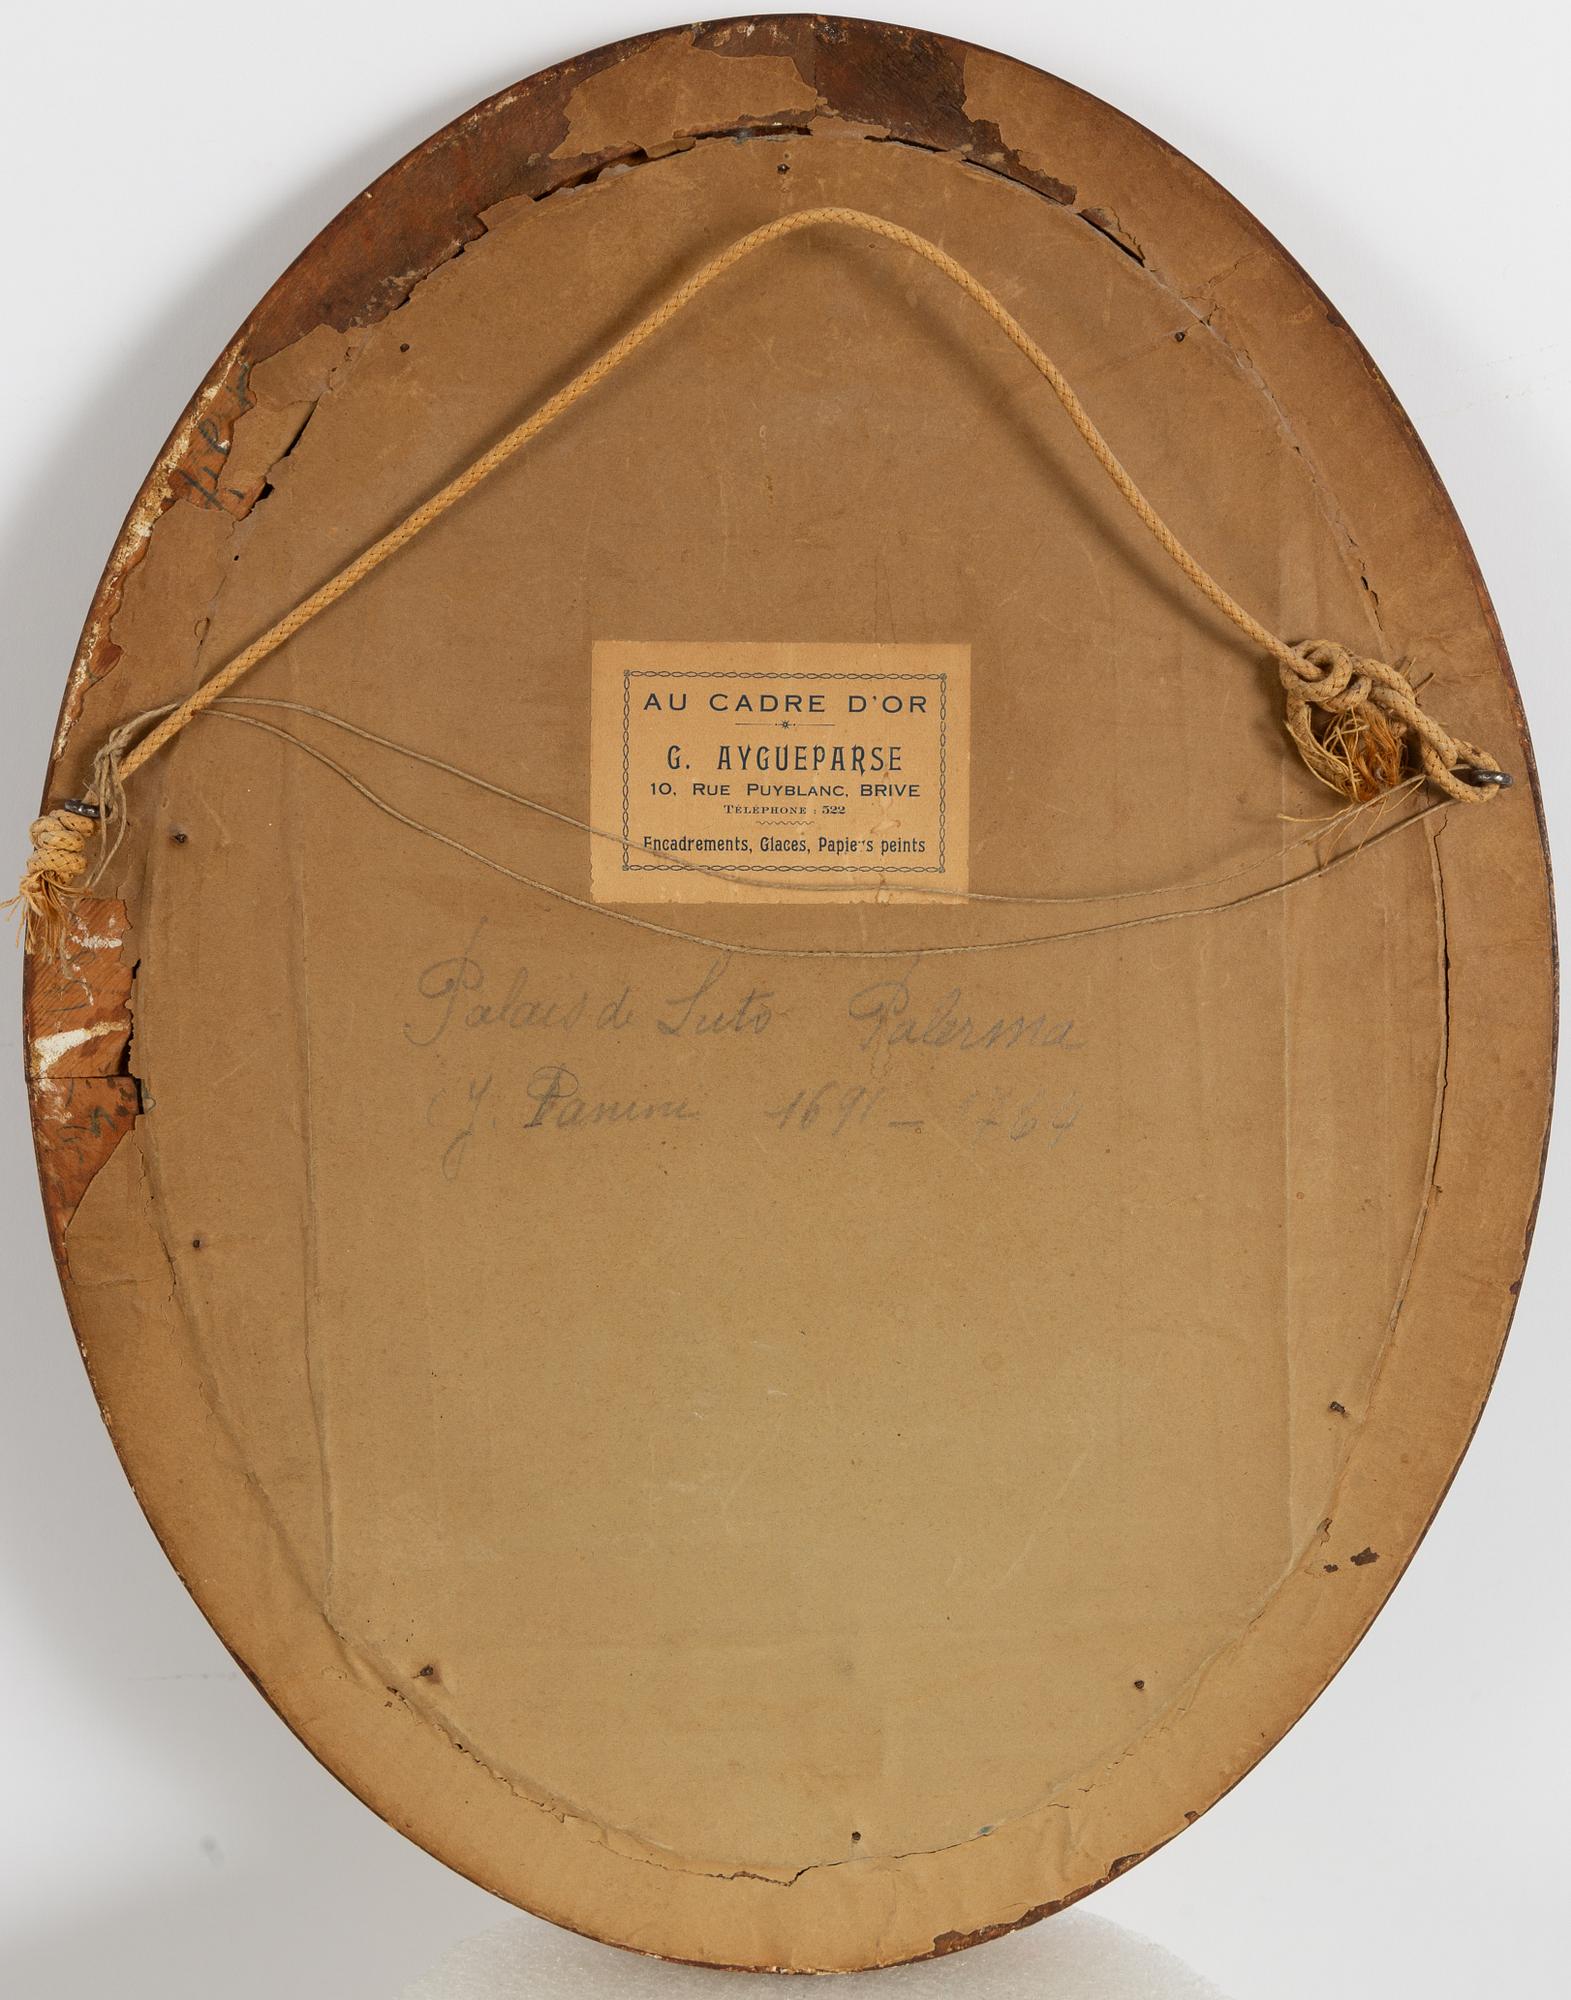 AU CADRE D'OR
G. AYGUEPARSE
10, RUE PUYBLANC, BRIVE
TÉLÉPHONE : 522
Encadrements, Glaces, Papiers peints
Palais de Suto Palerma
J. Panini 1691 - 1764